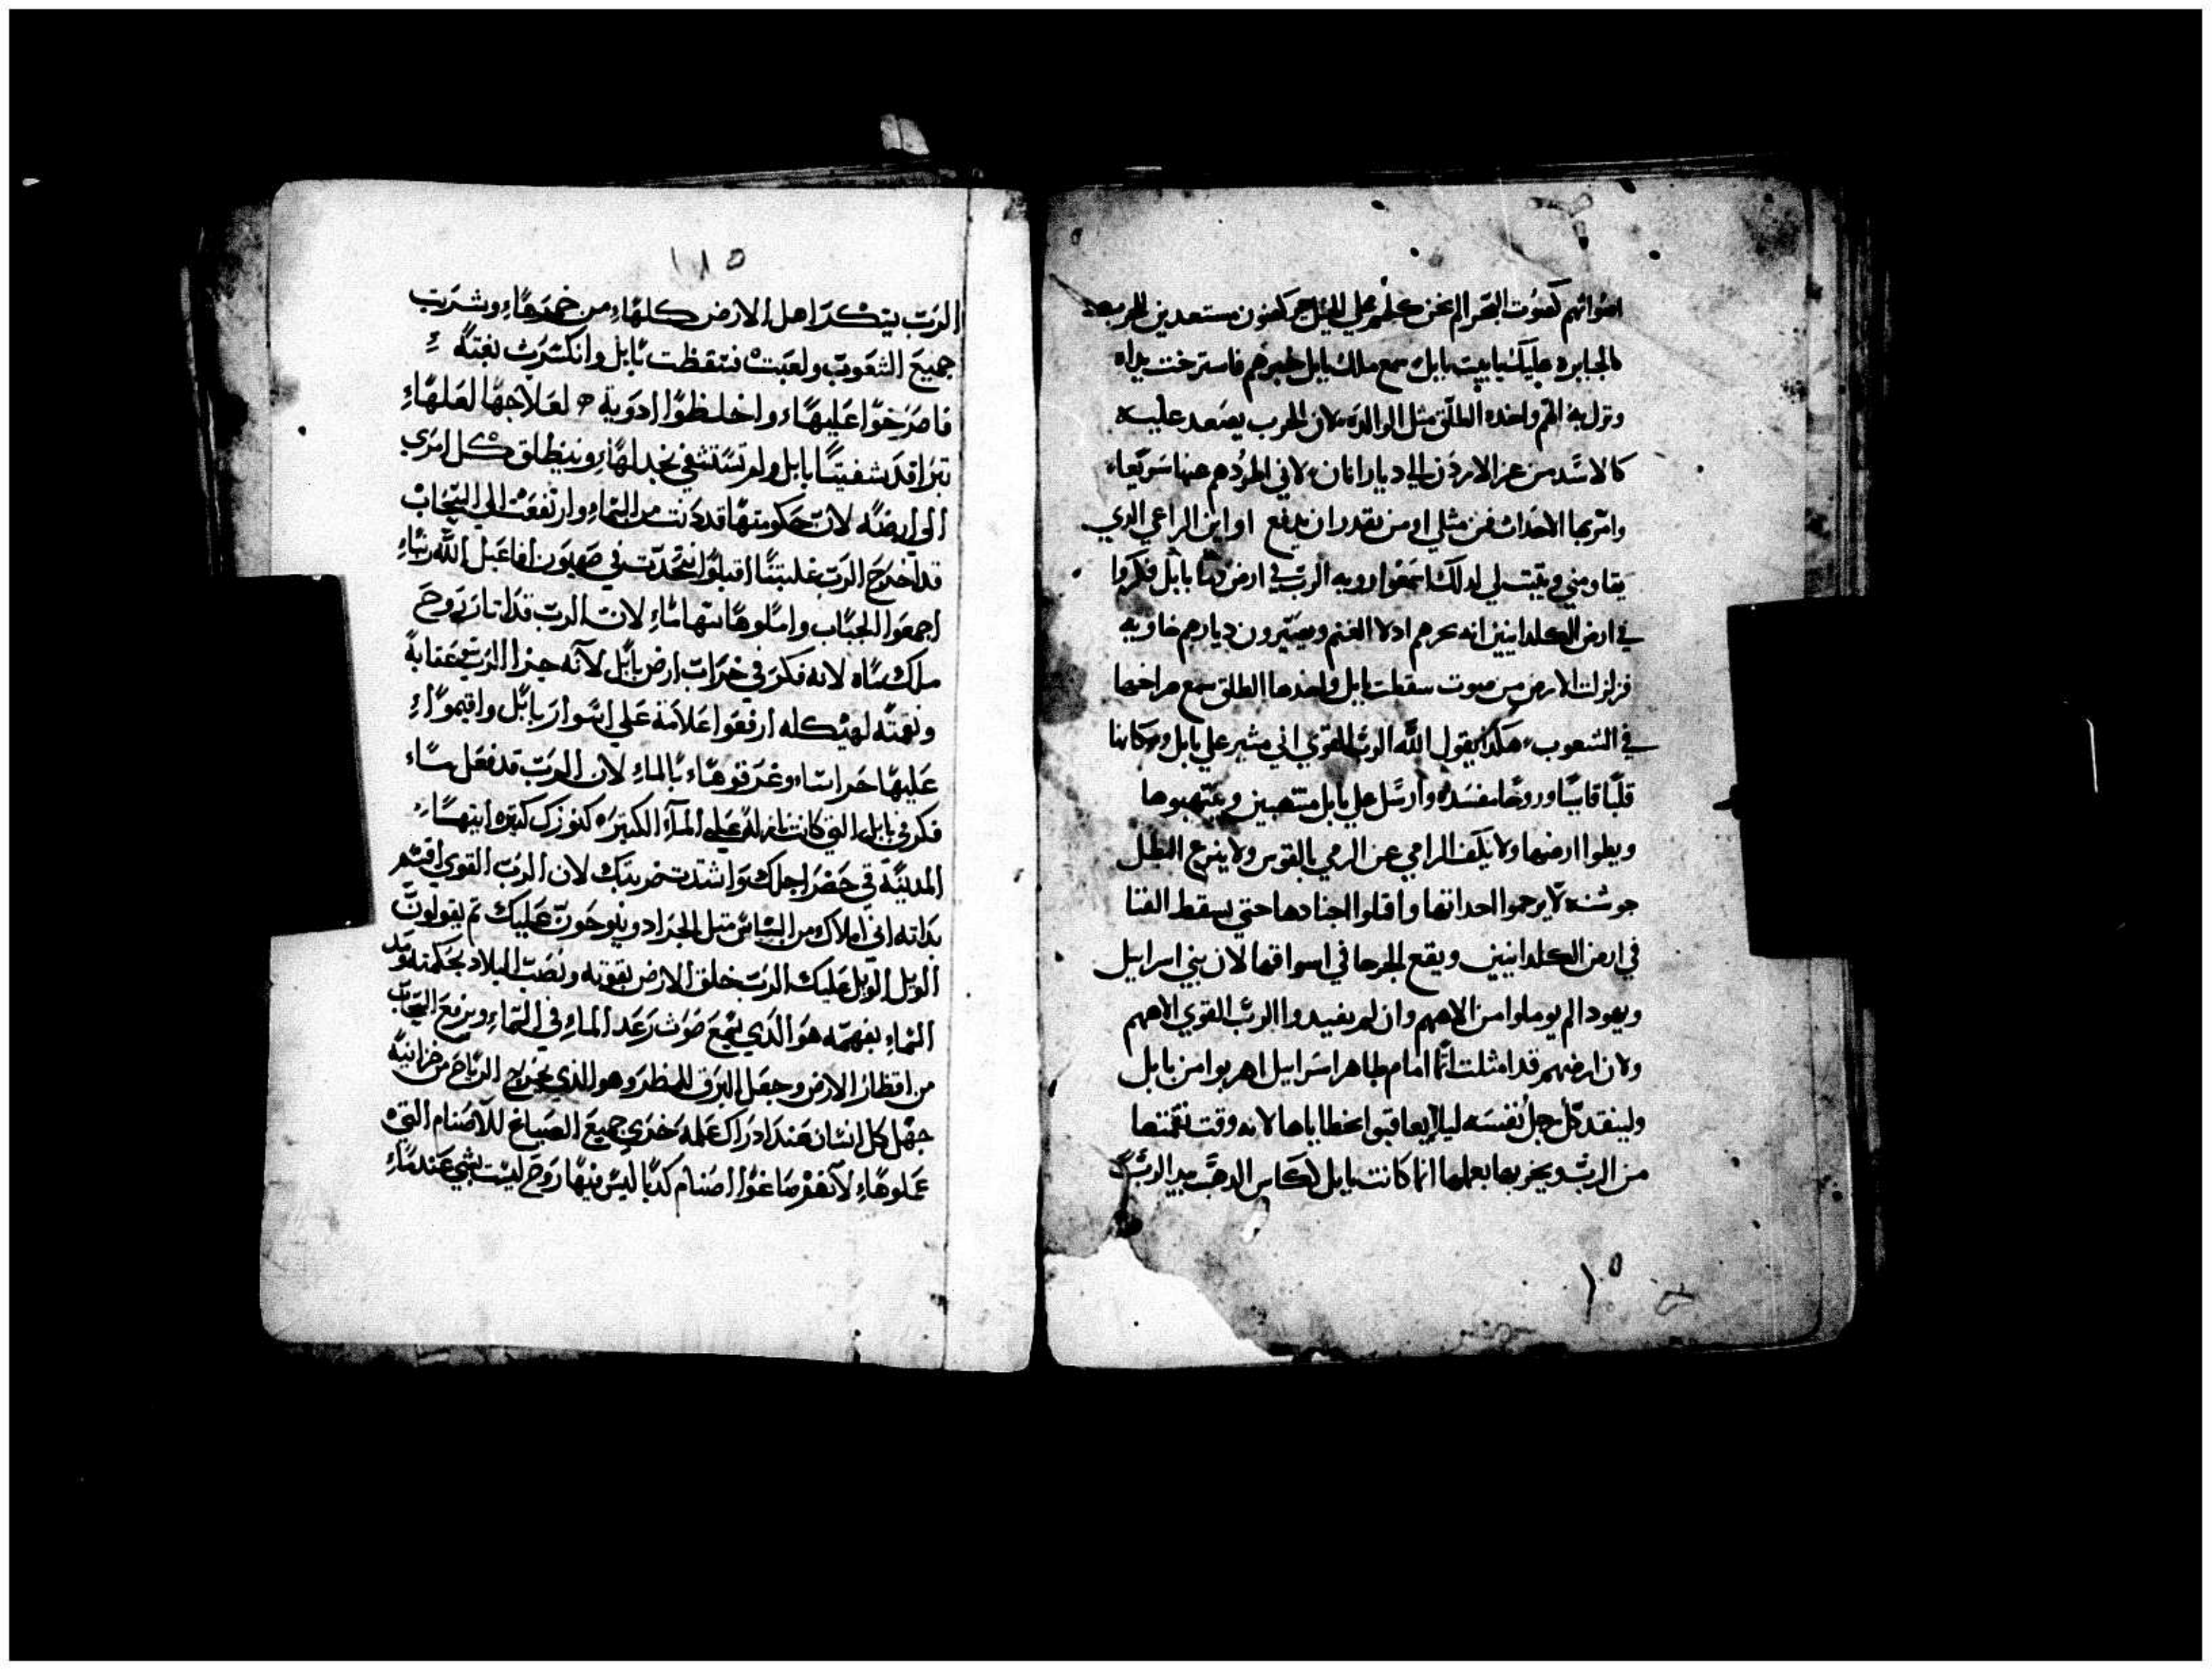 اصواتهم كصوت البحر علي الخيل يركبون مستعدين للحرب
كالجبابره عليك يابيت بابل سمع ملك بابل خبرهم فاسترخت يداه
ونزل به الغم واخده الطلق مثل الوالده لان الحرب يصعد عليه
كالاسد من عز الاردن الي ديار اتان لاني اطردهم عنها سريعا
وامر بها الاحداث فمن مثلي او من يقدر ان يدفع او اين الراعي الدي
يقاومني ويتبت لي لدلك اسمعوا رويه الرب في ارض بابل فكروا
في ارض الكلدانيين انه يجرهم ادلا الغنم ويصيرون ديارهم خاويه
فزلزلت الارض من صوت سقطت بابل واخدها الطلق سمع صراخها
في الشعوب هكدا يقول الله الرب القوي اني متير علي بابل وسكانها
قلبا قاسيا وروحا مفسده وارسل علي بابل منتهبين وينتهبوها
ويطوا ارضها ولا يكف الرامي عن الرمي بالقوس ولا ينزع البطل
جوشنه لا يرحموا احداتها واقتلوا اجنادها حتي يسقط القتلا
في ارض الكلدانيين ويقع الجرحا في اسواقها لان بني اسراييل
ويهودا لم يوملوا من الاههم وان لم يفيدوا الرب القوي الاههم
ولان ارضهم قد امتلت اتما امام طاهر اسراييل اهربوا من بابل
ولينقد كل رجل نفسه ليلا يعاقبوا بخطاياها لانه وقت نقمتها
من الرب ويجزيها بعملها انما كانت بابل لكاس الدهب بيد الرب
١٥
١١٥
الرب يسكر اهل الارض كلها من خمرها وشربت
جميع الشعوب ولعبت فسقطت بابل وانكسرت بغته
فاصرخوا عليها واخلطوا ادوية لعلاجها لعلها
تبرا قد شفينا بابل ولم تستشفي نجد لها وينطلق كل امري
الي ارضه لان حكومتها قد دنت من السماء وارتفعت الي السحاب
قد اخرج الرب غلبتنا اقبلوا نتحدت في صهيون افاعيل الله ربنا
اجمعوا الجباب واملوها سهاما لان الرب قد اتار روح
ملك ماه لانه فكر في خراب ارض بابل لانه جزا الرب عقابة
ونقمته لهيكله ارفعوا علامة علي اسوار بابل واقيموا
عليها حراسا وغرقوها بالماء لان الرب قد فعل
فكر في بابل التي كانت نازلة علي المآء الكتيره كنوزك كتيره ابتهسا
المدينة في حضر اجلك واشتدت ضربتك لان الرب القوي اقسم
بداته اني املاك من الناس متل الجراد وينوحون عليك تم يقولون
الويل الويل عليك الرب خلق الارض بقوته ونصب البلاد بحكمته ومد
السماء بفهمه هو الدي يسمع صوت رعد الماء في السماء ويرفع السحاب
من اقطار الارض وجعل البرق للمطر وهو الدي يخرج الرياح من خزاينه
جهل كل انسان عند ادراك علمه خزي جميع الصياغ للاصنام التي
عملوها لانهم صاغوا اصنام كدبا ليس فيها روح ليست بشي عندما